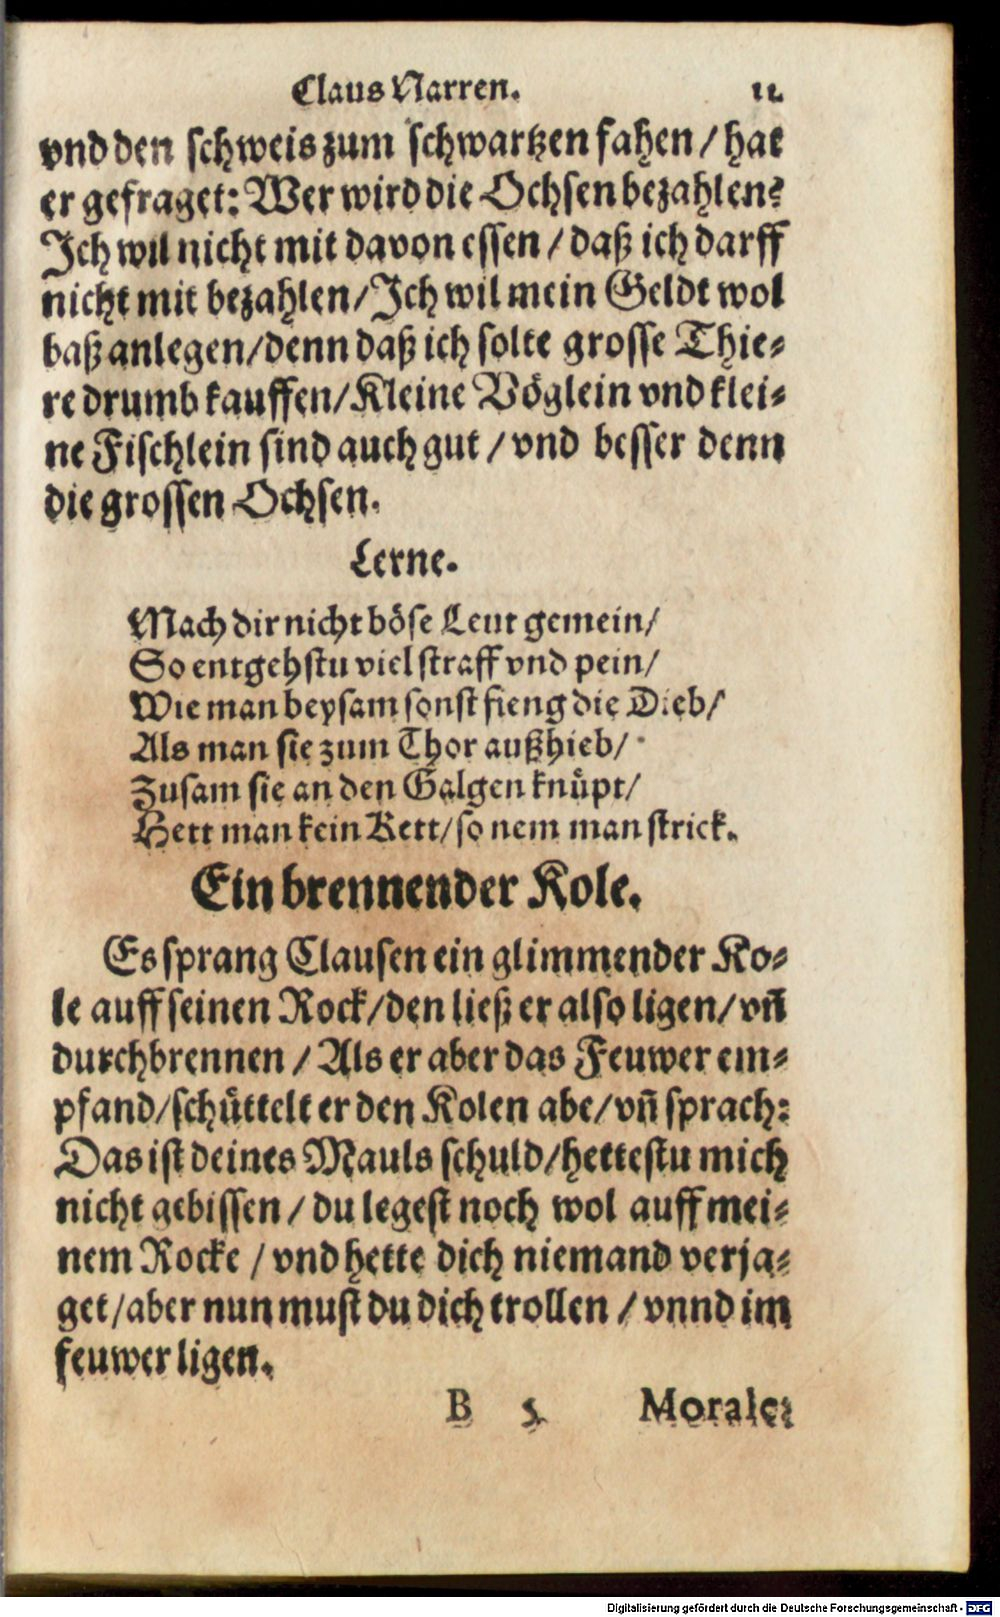 Claus Narren. 11.
vnd den schweis zum schwartzen fahen / hat
er gefraget: Wer wird die Ochsen bezahlen?
Ich wil nicht mit davon essen / daß ich darff
nicht mit bezahlen / Ich wil mein Geldt wol
baß anlegen / denn daß ich solte grosse Thie⸗
re drumb kauffen / Kleine Vöglein vnd klei⸗
ne Fischlein sind auch gut / vnd besser denn
die grossen Ochsen.
Lerne.
Mach dir nicht böse Leut gemein /
So entgehstu viel straff vnd pein /
Wie man beysam sonst fieng die Dieb /
Als man sie zum Thor außhieb /
Zusam sie an den Galgen knüpt /
Hett man kein Kett / so nem man strick.
Ein brennender Kole.
Es sprang Clausen ein glimmender Ko⸗
le auff seinen Rock / den ließ er also ligen / vñ
durchbrennen / Als er aber das Feuwer em⸗
pfand / schüttelt er den Kolen abe / vñ sprach:
Das ist deines Mauls schuld / hettestu mich
nicht gebissen / du legest noch wol auff mei⸗
nem Rocke / vnd hette dich niemand verja⸗
get / aber nun must du dich trollen / vnnd im
feuwer ligen.
B 5 Morale:
Digitalisierung gefördert durch die Deutsche Forschungsgemeinschaft - DFG